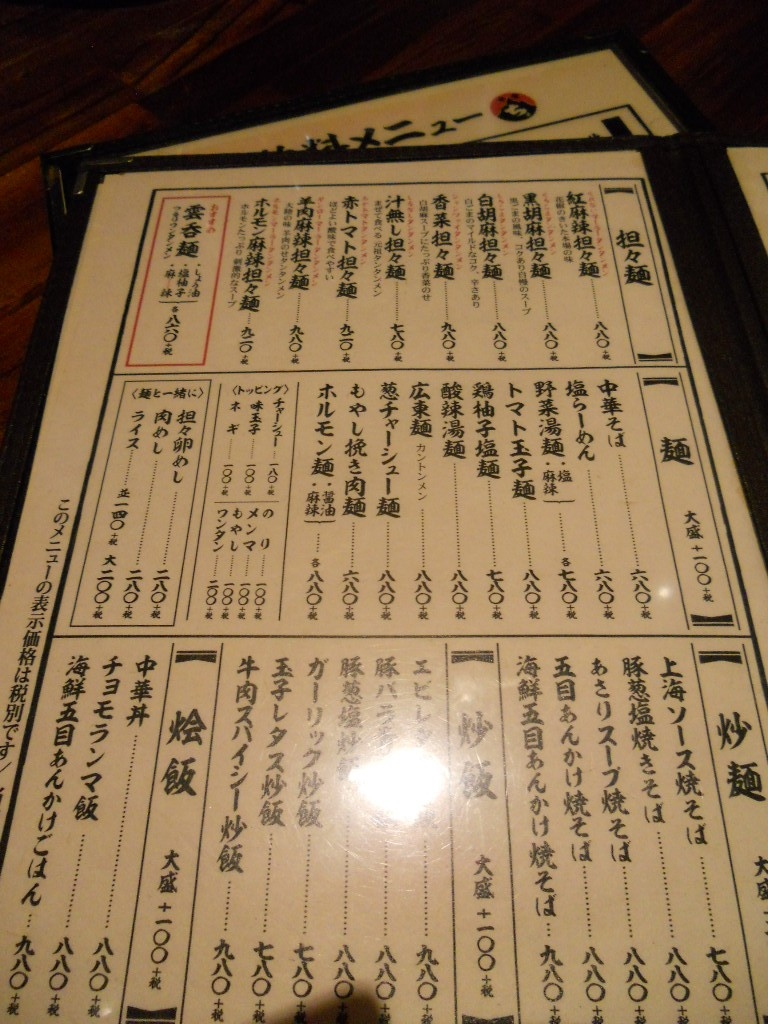 料メニュー
担々麺
紅麻辣担々麺 八八〇+税
黒胡麻担々麺 八八〇+税
黒ごまの風味、コクあり自慢のスープ
白胡麻担々麺 八八〇+税
白ごまのマイルドなコク、辛さあり
香菜担々麺 九八〇+税
白胡麻スープにたっぷり香菜のせ
汁無し担々麺 七八〇+税
まぜて食べる元祖タンタンメン
赤トマト担々麺 九二〇+税
ほどよい酸味で食べやすい
羊肉麻辣担々麺 九八〇+税
ホルモン麻辣担々麺 九二〇+税
ホルモンたっぷり刺激的なスープ
おすすめ
雲呑麺 ・しょう油 ・塩柚子 ・麻辣 各八六〇+税
麺 大盛+一〇〇+税
中華そば 六八〇+税
塩らーめん 六八〇+税
野菜湯麺 ・塩 ・麻辣 各七八〇+税
トマト玉子麺 八八〇+税
鶏柚子塩麺 七八〇+税
酸辣湯麺 八八〇+税
広東麺 カントンメン 八八〇+税
葱チャーシュー麺 八八〇+税
もやし挽き肉麺 六八〇+税
ホルモン麺 ・醤油 ・麻辣 各八八〇+税
〈トッピング〉
チャーシュー 一八〇+税
味玉子 一〇〇+税
ネギ 一〇〇+税
のり 一〇〇+税
メンマ 一〇〇+税
もやし 一〇〇+税
ワンタン 二〇〇+税
〈麺と一緒に〉
担々卵めし 二八〇+税
肉めし 二八〇+税
ライス 並一四〇+税 大二〇〇+税
炒麺 大盛
上海ソース焼そば 七八〇+税
豚葱塩焼きそば 八八〇+税
あさりスープ焼そば 八八〇+税
五目あんかけ焼そば 八八〇+税
海鮮五目あんかけ焼そば 九八〇+税
炒飯 大盛+一〇〇+税
エビレタ 九八〇+税
豚バラ 八八〇+税
豚葱塩炒飯 八八〇+税
ガーリック炒飯 七八〇+税
玉子レタス炒飯 七八〇+税
牛肉スパイシー炒飯 九八〇+税
烩飯 大盛+一〇〇+税
中華丼 八八〇+税
チヨモランマ飯 八八〇+税
海鮮五目あんかけごはん 九八〇+税
このメニューの表示価格は税別です